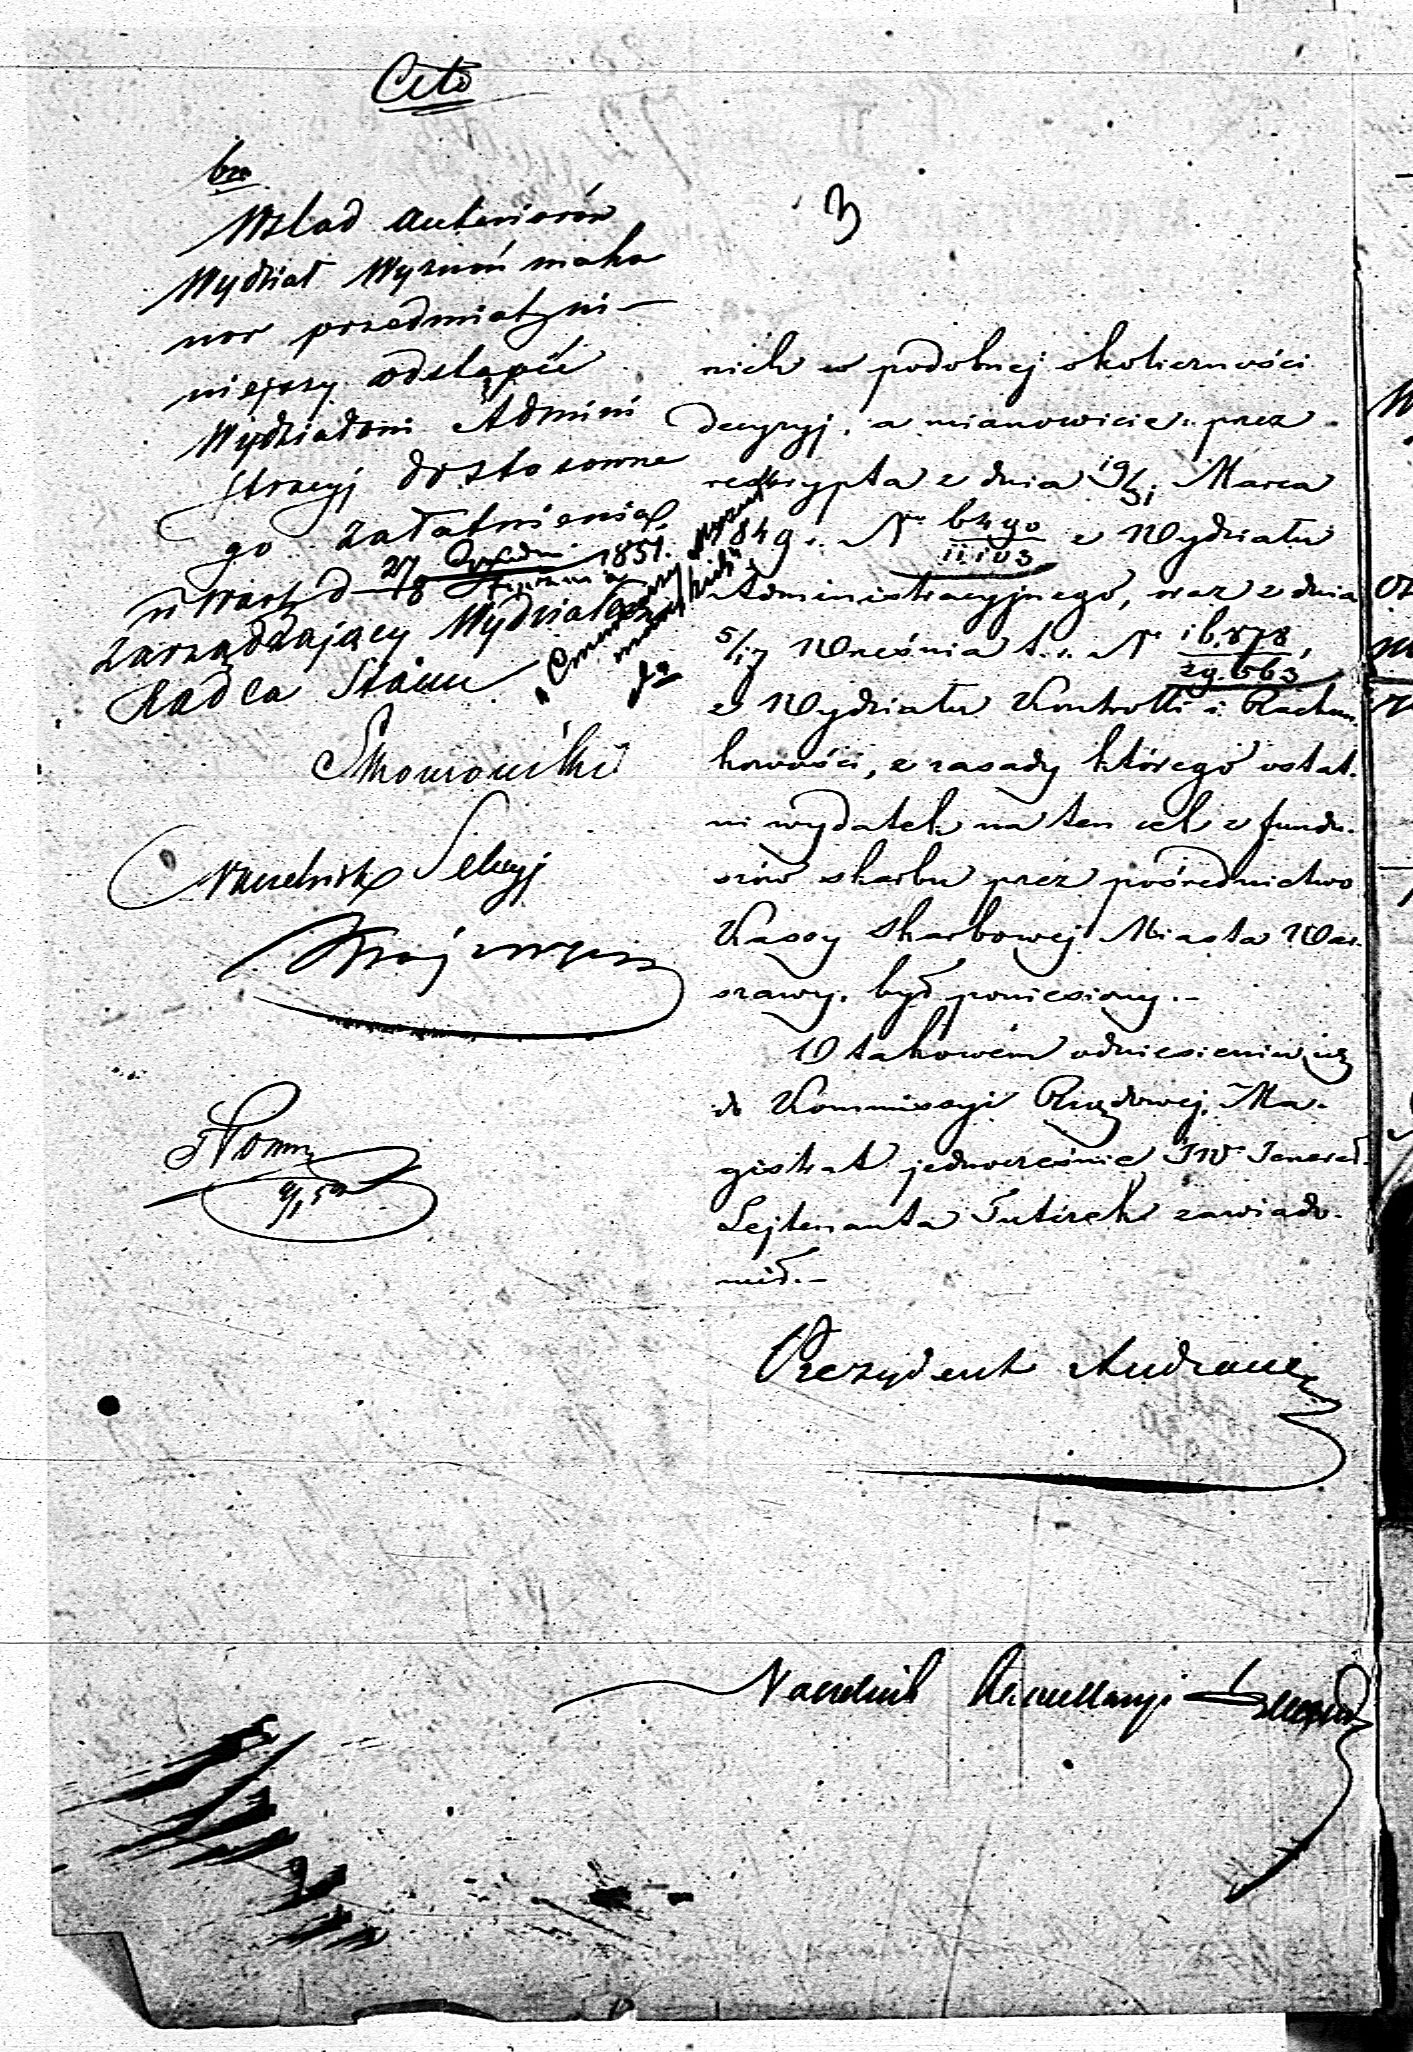 Cito
3
Wslad anteriorów
Wydział Wyznań
przedmiot ni-
niejszy odstąpić
Wydziałowi Admini
stracyj do stosowne
go załatwienia.
w Warsz. d. 27/8 1851.
Zarządzający Wydziałem
Radca Stanu
Naczelnik Sekcyj
nich w podobnej okoliczności
decyzyj, a mianowicie: przez
reskrypta z dnia 19/31 Marca
1849 r. Nr 6490/11.103 z Wydziału
Administracyjnego, oraz z dnia
5/17 Września t. r. Nr 16.878/29.663,
z Wydziału Kontrolli i Rachun-
kowości, z zasady którego ostat-
ni wydatek na ten cel z fundu-
szów skarbu przez pośrednictwo
Kassy Skarbowej Miasta War-
szawy, był poniesiony.-
O takowém odniesieniu się
do Kommissyi Rządowej, Ma-
gistrat jednocześnie JW Jenerał-
Lejtenanta Tutczek zawiado-
mił.-
Prezydent Andrault
Naczelnik Kancellaryi